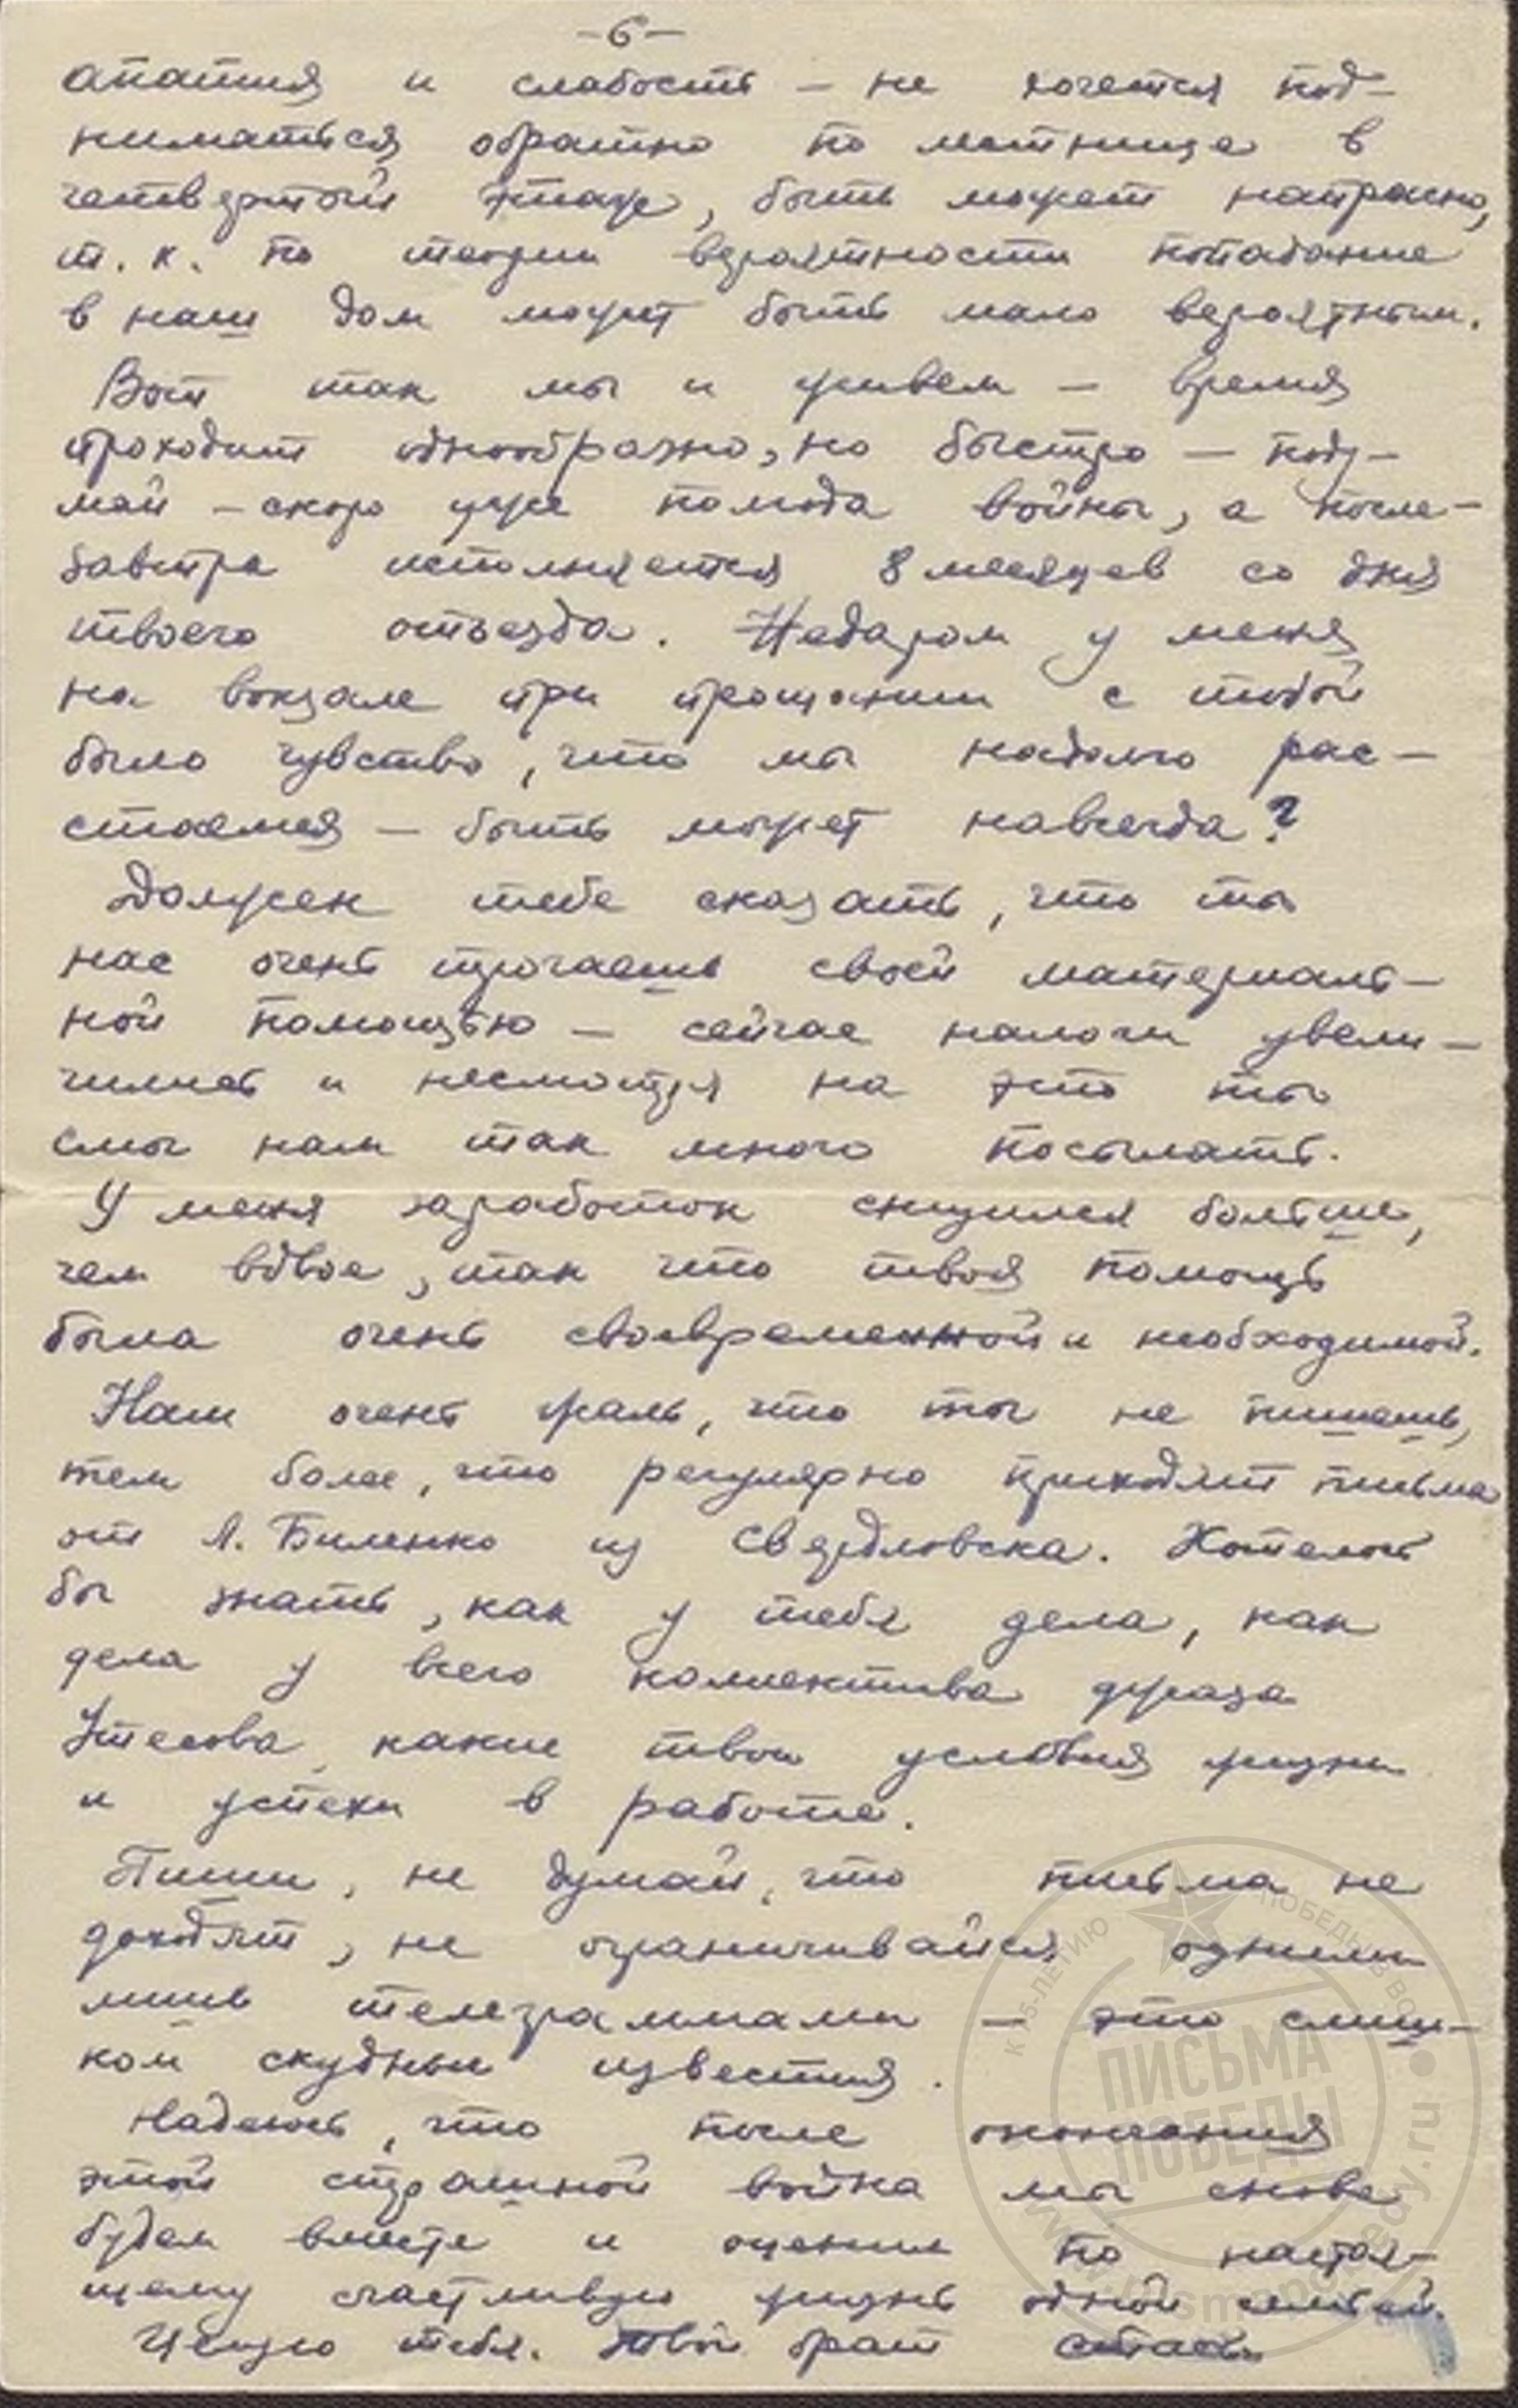 -6-
апатия и слабость – не хочется под-
ниматься обратно по лестнице в
четвертый этаж, быть может напрасно,
т. к. по теории вероятности попадание
в наш дом может быть мало вероятным.
Вот так мы и живем – время
проходит однообразно, но быстро – поду-
май – скоро уже полгода войны, а после-
завтра исполняется 8 месяцев со дня
твоего отъезда. Недаром у меня
на вокзале при прощании с тобой
было чувство, что мы надолго рас-
стаемся – быть может навсегда?
Должен тебе сказать, что ты
нас очень трогаешь своей материаль-
ной помощью – сейчас налоги увели-
чились и несмотря на это ты
смог нам так много посылать.
У меня заработок снизился больше,
чем вдвое, так что твоя помощь
была очень своевременной и необходимой.
Нам очень жаль, что ты не пишешь,
тем более, что регулярно приходят письма
от Л. Биленко из Свердловска. Хотелось
бы знать, как у тебя дела, как
дела у всего коллектива джаза
Утесова, какие твои условия жизни
и успехи в работе.
Пиши, не думай, что письма не
доходят, не ограничивайся одними
лишь телеграммами – это слиш-
ком скудные известия.
Надеюсь, что после окончания
этой страшной война мы снова
будем вместе и оценим по настоя-
щему счастливую жизнь одной семьей.
Целую тебя. Твой брат Стась
К 75-ЛЕТИЮ ПОБЕДЫ В ВОВ
ПИСЬМА
ПОБЕДЫ
www.pismapobedy.ru